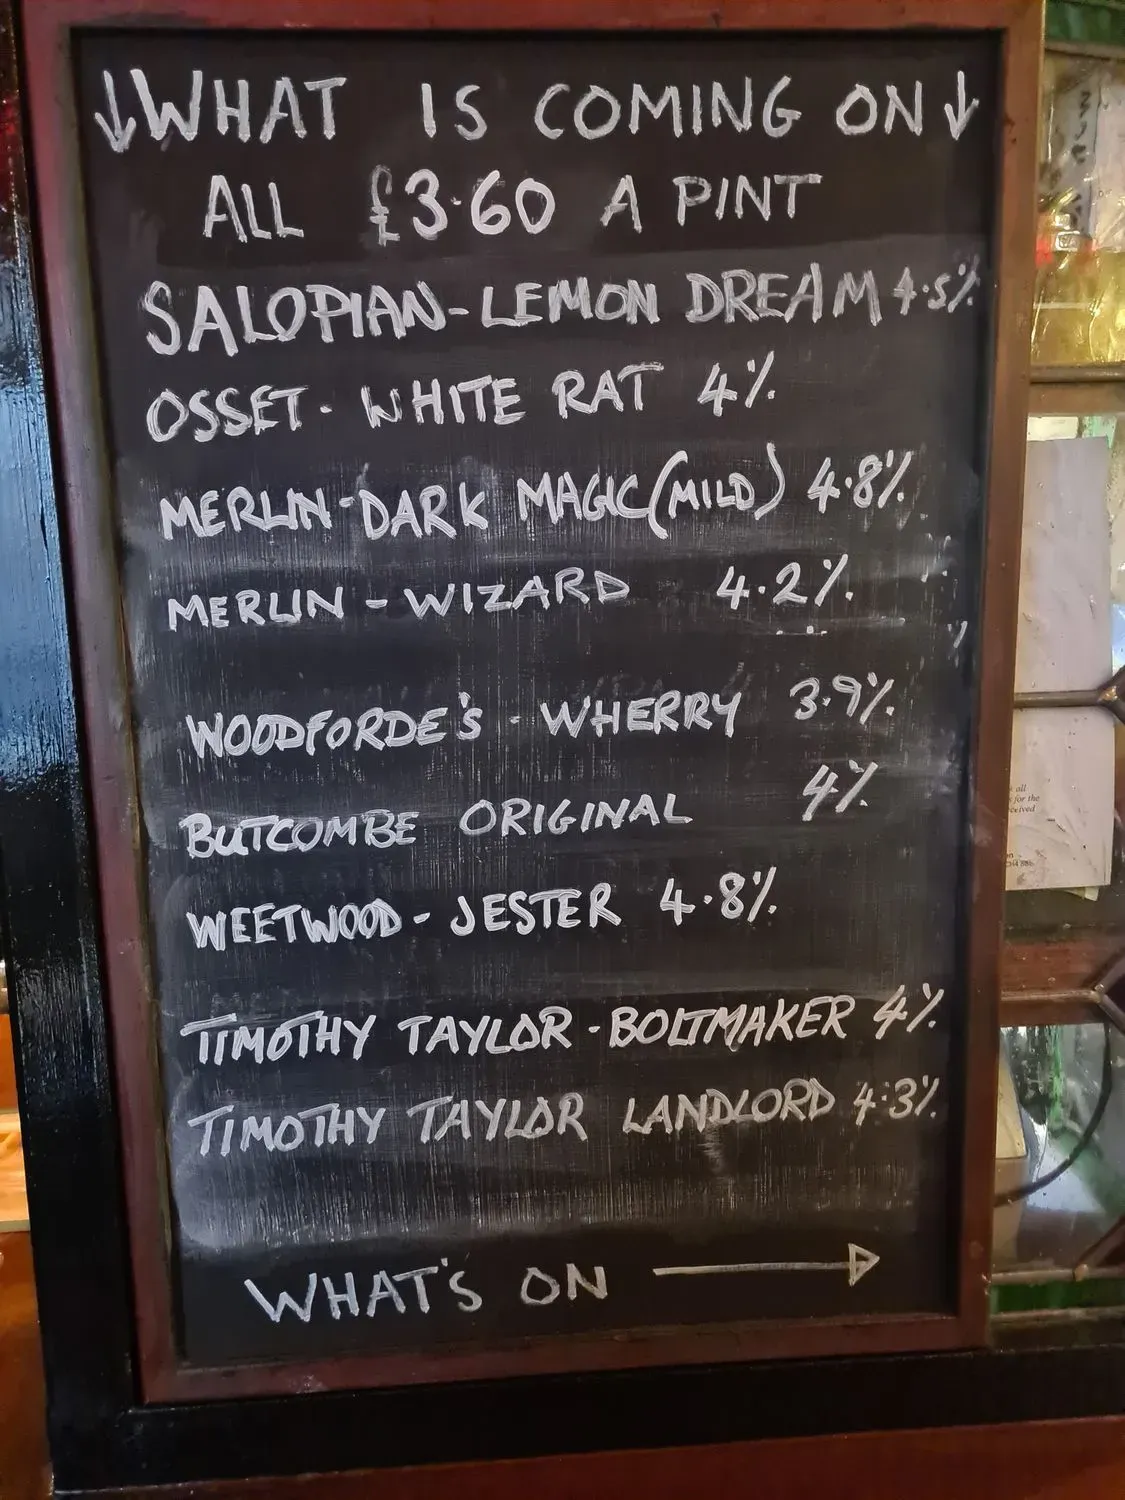 ↓WHAT IS COMING ON↓
ALL £3.60 A PINT
SALOPIAN-LEMON DREAM 4.5%
OSSET - WHITE RAT 4%
MERLIN-DARK MAGIC (MILD) 4.8%
MERLIN - WIZARD 4.2%
WOODFORDE'S - WHERRY 3.9%
BUTCOMBE ORIGINAL 4%
WEETWOOD - JESTER 4.8%
TIMOTHY TAYLOR - BOLTMAKER 4%
TIMOTHY TAYLOR LANDLORD 4.3%
WHAT'S ON →
all
for the